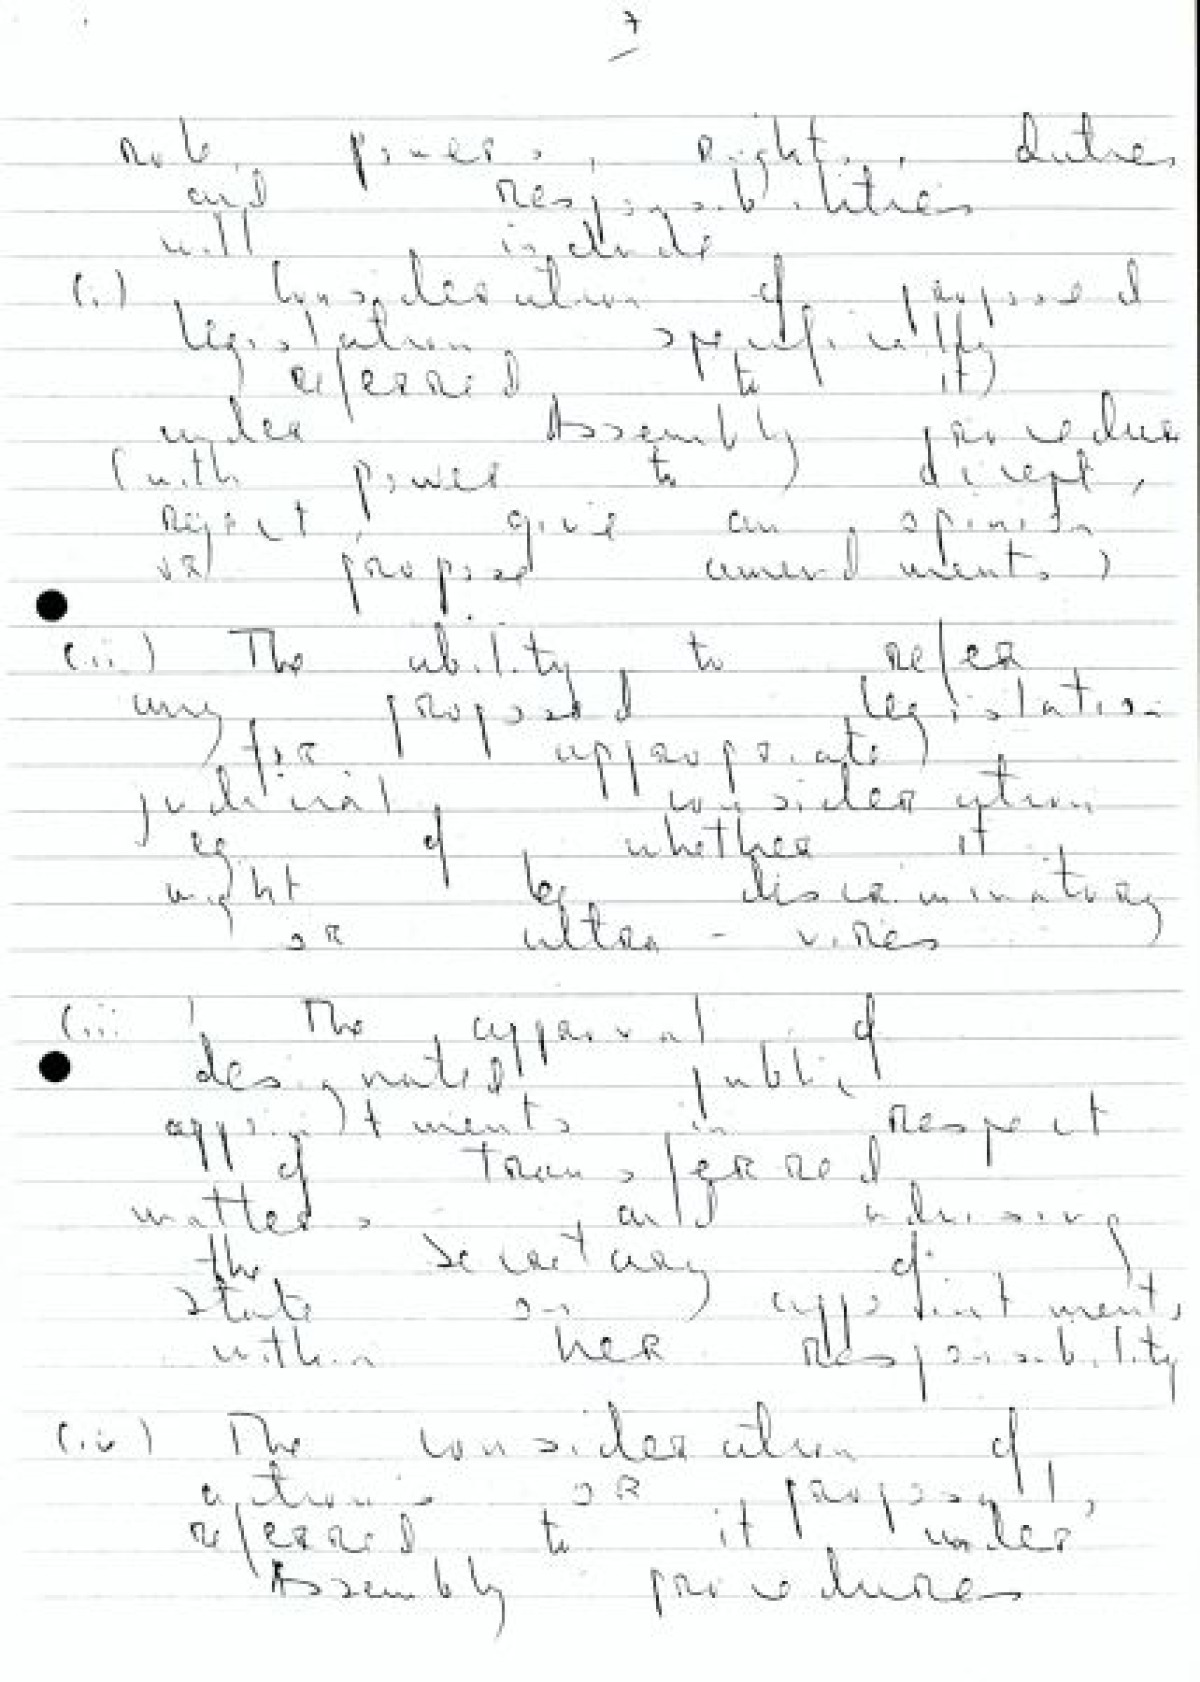 7
role, powers, rights, duties
and responsibilities
will include
(i) Consideration of proposed
legislation, specifically
referred to it
under Assembly procedure
(with power to
reject, give an opinion
or propose amendments)
(ii) The ability to refer
any proposed legislation
for appropriate
judicial consideration
eg of whether it
might be discriminatory
or ultra-vires
(iii) The approval of
designated public
appointments in respect
of transferred
matters and advising
the Secretary of
State on appointments
within her responsibility
(iv) The consideration of
actions or proposals,
referred to it under
Assembly procedures